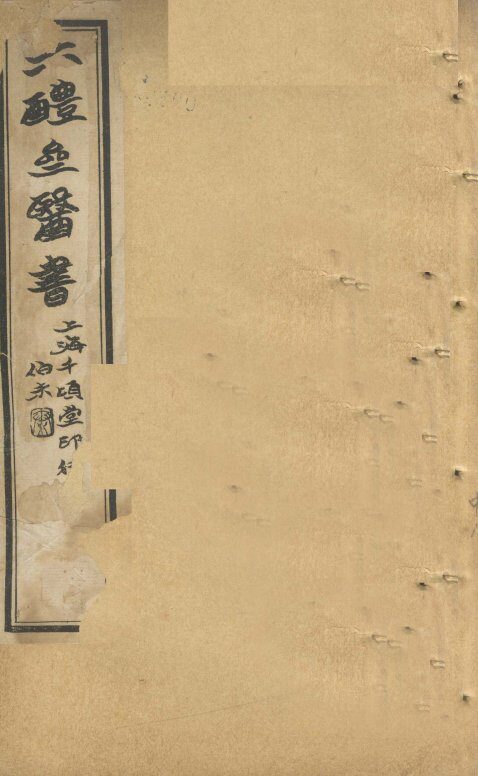 六醴亝醫書
上海千頃堂印
伯未